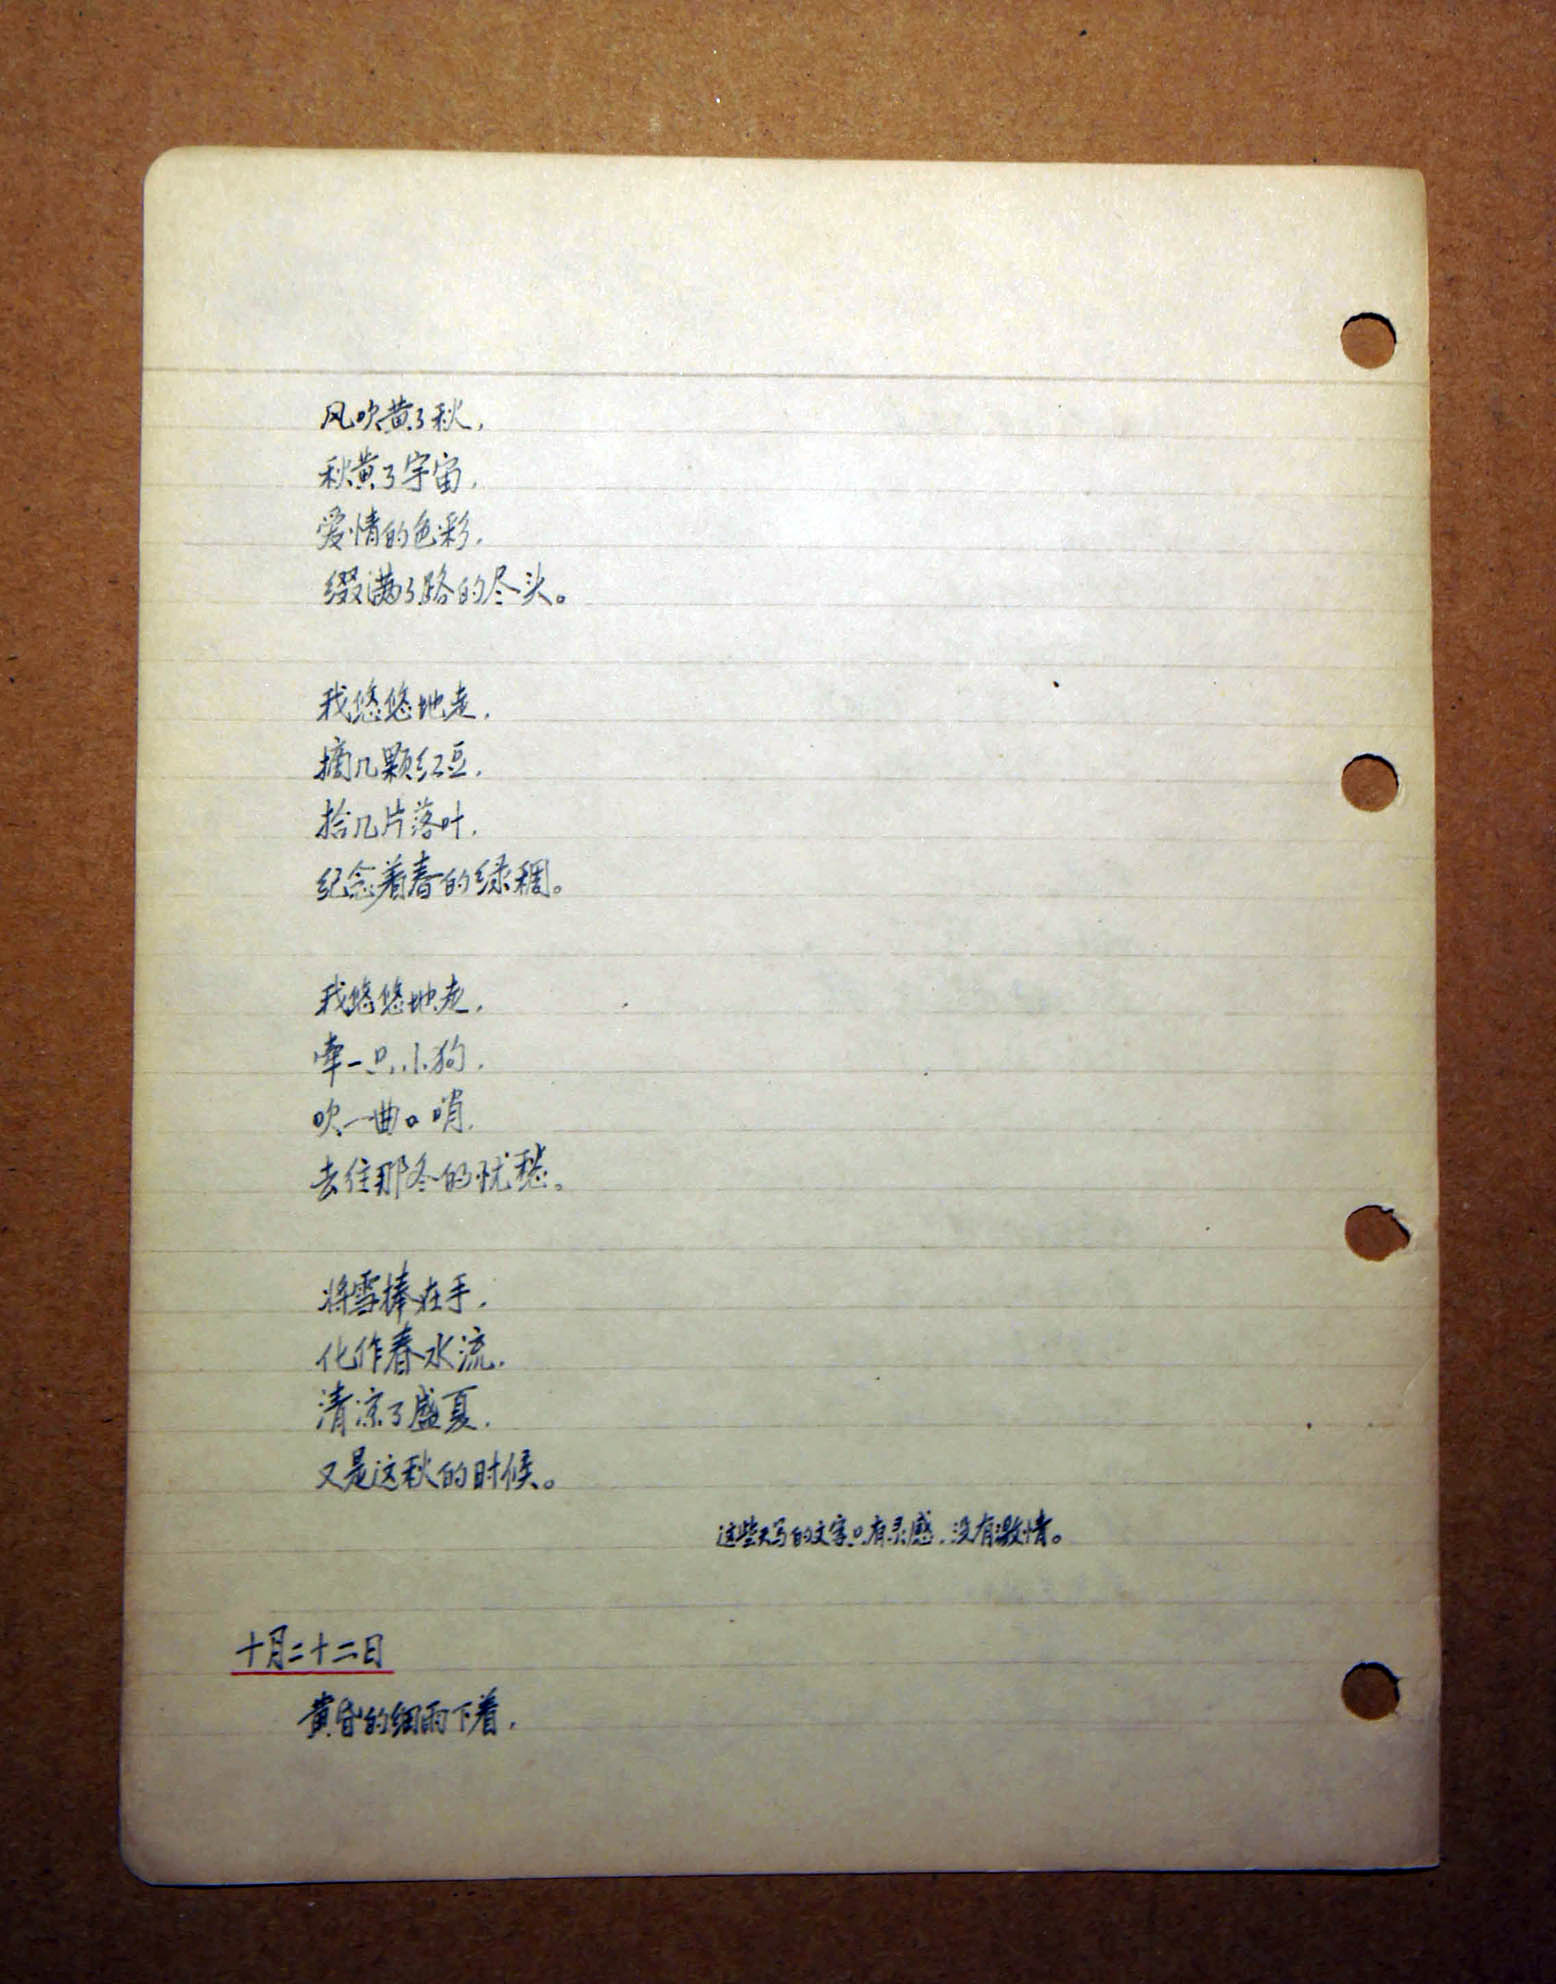 风吹黄了秋,
秋黄了宇宙,
爱情的色彩,
缀满了路的尽头。
我悠悠地走,
摘几颗红豆,
拾几片落叶,
纪念着春的绿稠。
我悠悠地走,
牵一只小狗,
吹一曲口哨,
去住那冬的忧愁。
将雪捧在手,
化作春水流,
清凉了盛夏,
又是这秋的时候。
这些天写的文字只有灵感,没有激情。
十月二十二日
黄昏的细雨下着,